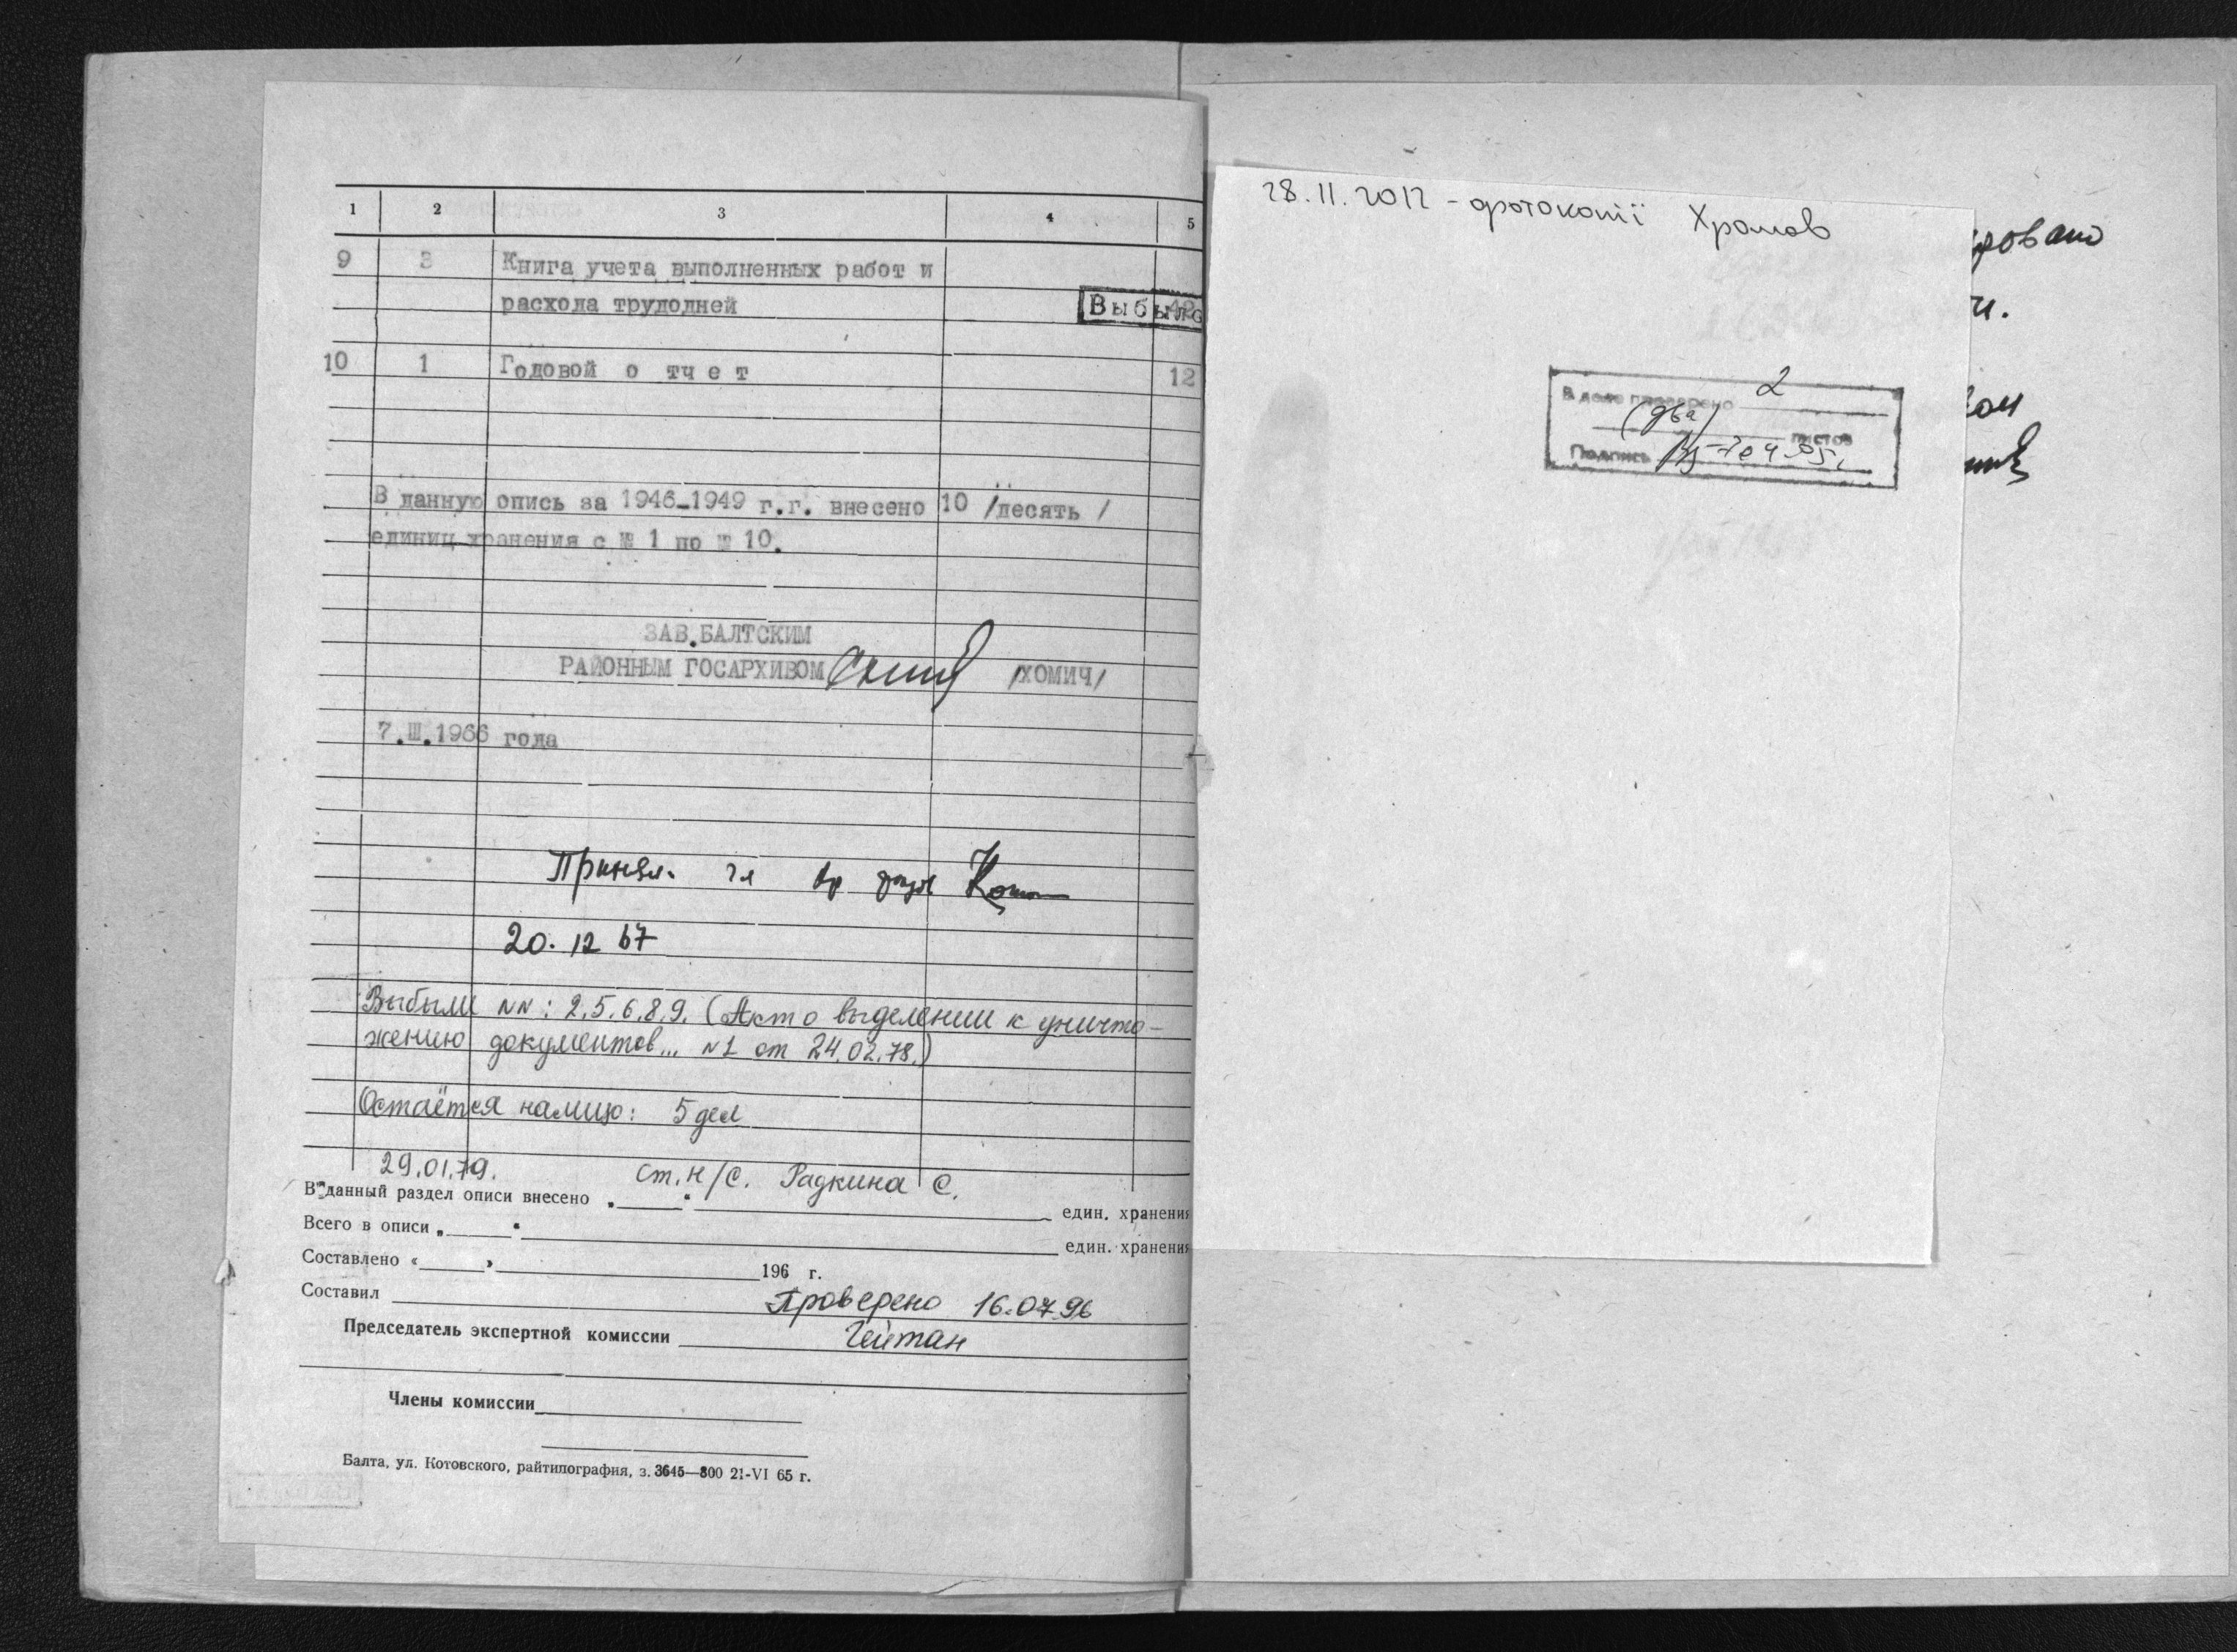 1 2 3 4 5
9 3 Книга учета выполненных работ и
расхода трудодней Выбыло
10 1 Годовой о тч е т 12
В данную опись за 1946-1949 г.г. внесено 10 /десять /
единиц хранения с № 1 по № 10.
ЗАВ.БАЛТСКИМ
РАЙОННЫМ ГОСАРХИВОМ /ХОМИЧ/
7.III.1966 года
Принял.
20. 12 67
Выбыли NN: 2,5,6,8,9. (Акт о выделении к уничто-
жению документов... N1 от 24.02.78.)
Остаётся налицо: 5 дел
29.01.79. ст.н/с. Радкина С.
В данный раздел описи внесено „ “ един. хранения
Всего в описи „ “ един. хранения
Составлено « » 196 г.
Составил Проверено 16.07.96
Председатель экспертной комиссии Гейтан
Члены комиссии
Балта, ул. Котовского, райтипография, з. 3645—800 21-VI 65 г.
28.11.2012 - фотокопії Храмов
В деле проверено 2
(два) листов
Подпись